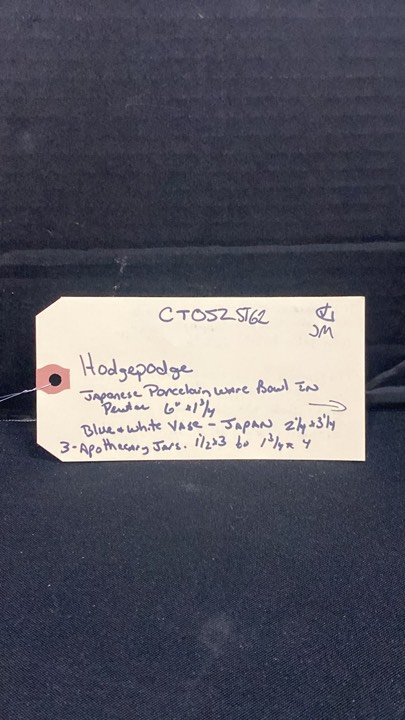 CTO52 5162
JM
Hodgepodge
Japanese Porcelain Ware Bowl In
Pewter 6" x 1 3/4
Blue & White Vase - Japan 2 1/4 x 3 1/4
3 - Apothecary Jars. 1 1/2 x 3 to 1 3/4 x 4